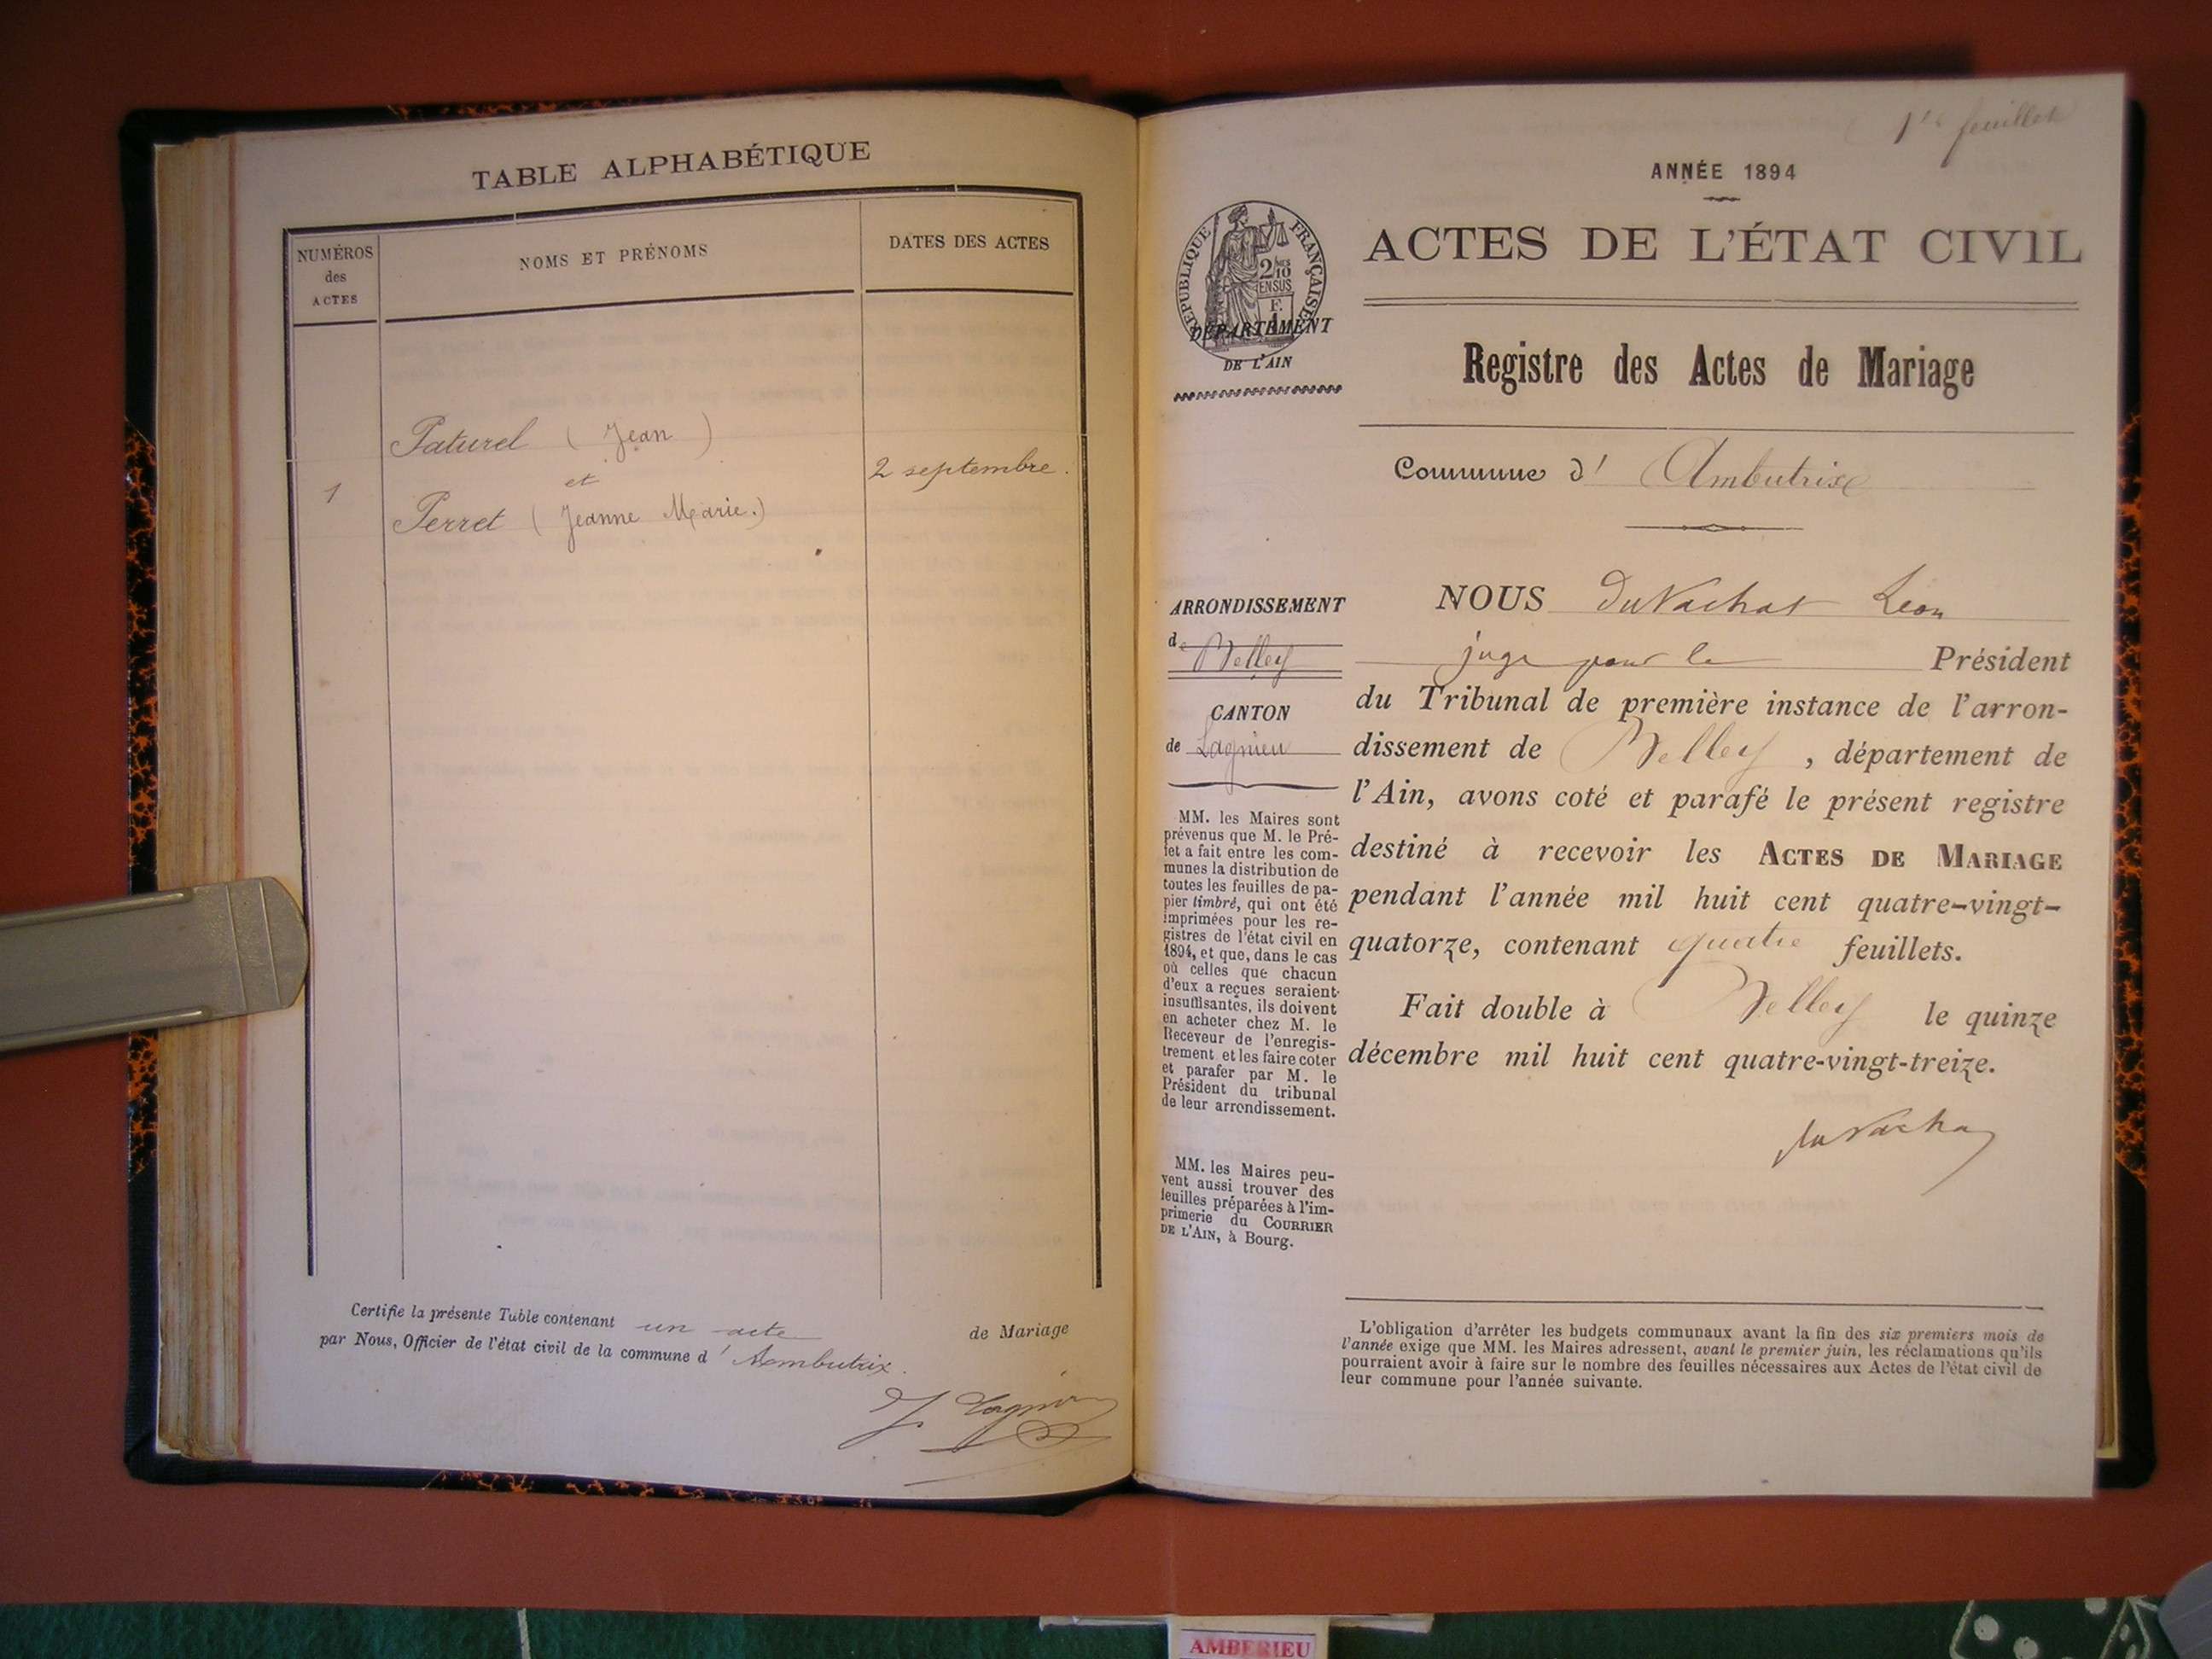 TABLE ALPHABÉTIQUE
NUMÉROS
des
ACTES
NOMS ET PRÉNOMS
DATES DES ACTES
Paturel ( Jean )
et
1
2 septembre.
Perret ( Jeanne Marie.)
Certifie la présente Table contenant un acte de Mariage
par Nous, Officier de l'état civil de la commune d' Ambutrix.
1er feuillet
ANNÉE 1894
RÉPUBLIQUE FRANÇAISE
2/10
EN SUS
ACTES DE L'ÉTAT CIVIL
DÉPARTEMENT
DE L'AIN
Registre des Actes de Mariage
Commune d' Ambutrix
ARRONDISSEMENT
de Belley
CANTON
de Lagnieu
MM. les Maires sont
prévenus que M. le Pré-
fet a fait entre les com-
munes la distribution de
toutes les feuilles de pa-
pier timbré, qui ont été
imprimées pour les re-
gistres de l'état civil en
1894, et que, dans le cas
où celles que chacun
d'eux a reçues seraient
insuffisantes, ils doivent
en acheter chez M. le
Receveur de l'enregis-
trement et les faire coter
et parafer par M. le
Président du tribunal
de leur arrondissement.
MM. les Maires peu-
vent aussi trouver des
feuilles préparées à l'im-
primerie du COURRIER
DE L'AIN, à Bourg.
NOUS DuVachat Léon
juge pour le Président
du Tribunal de première instance de l'arron-
dissement de Belley, département de
l'Ain, avons coté et parafé le présent registre
destiné à recevoir les ACTES DE MARIAGE
pendant l'année mil huit cent quatre-vingt-
quatorze, contenant quatre feuillets.
Fait double à Belley le quinze
décembre mil huit cent quatre-vingt-treize.
DuVachat
L'obligation d'arrêter les budgets communaux avant la fin des six premiers mois de
l'année exige que MM. les Maires adressent, avant le premier juin, les réclamations qu'ils
pourraient avoir à faire sur le nombre des feuilles nécessaires aux Actes de l'état civil de
leur commune pour l'année suivante.
AMBERIEU